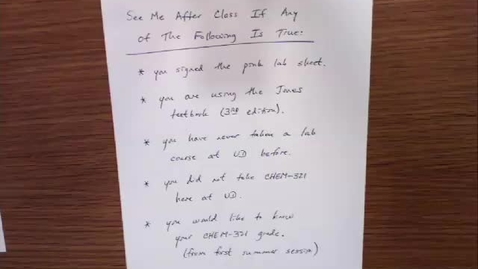 See Me After Class If Any
of The Following Is True:
* you signed the pink lab sheet.
* you are using the Jones
textbook (3rd edition).
* you have never taken a lab
course at UD before.
* you did not take CHEM-321
here at UD.
* you would like to know
your CHEM-321 grade.
(from first summer session)